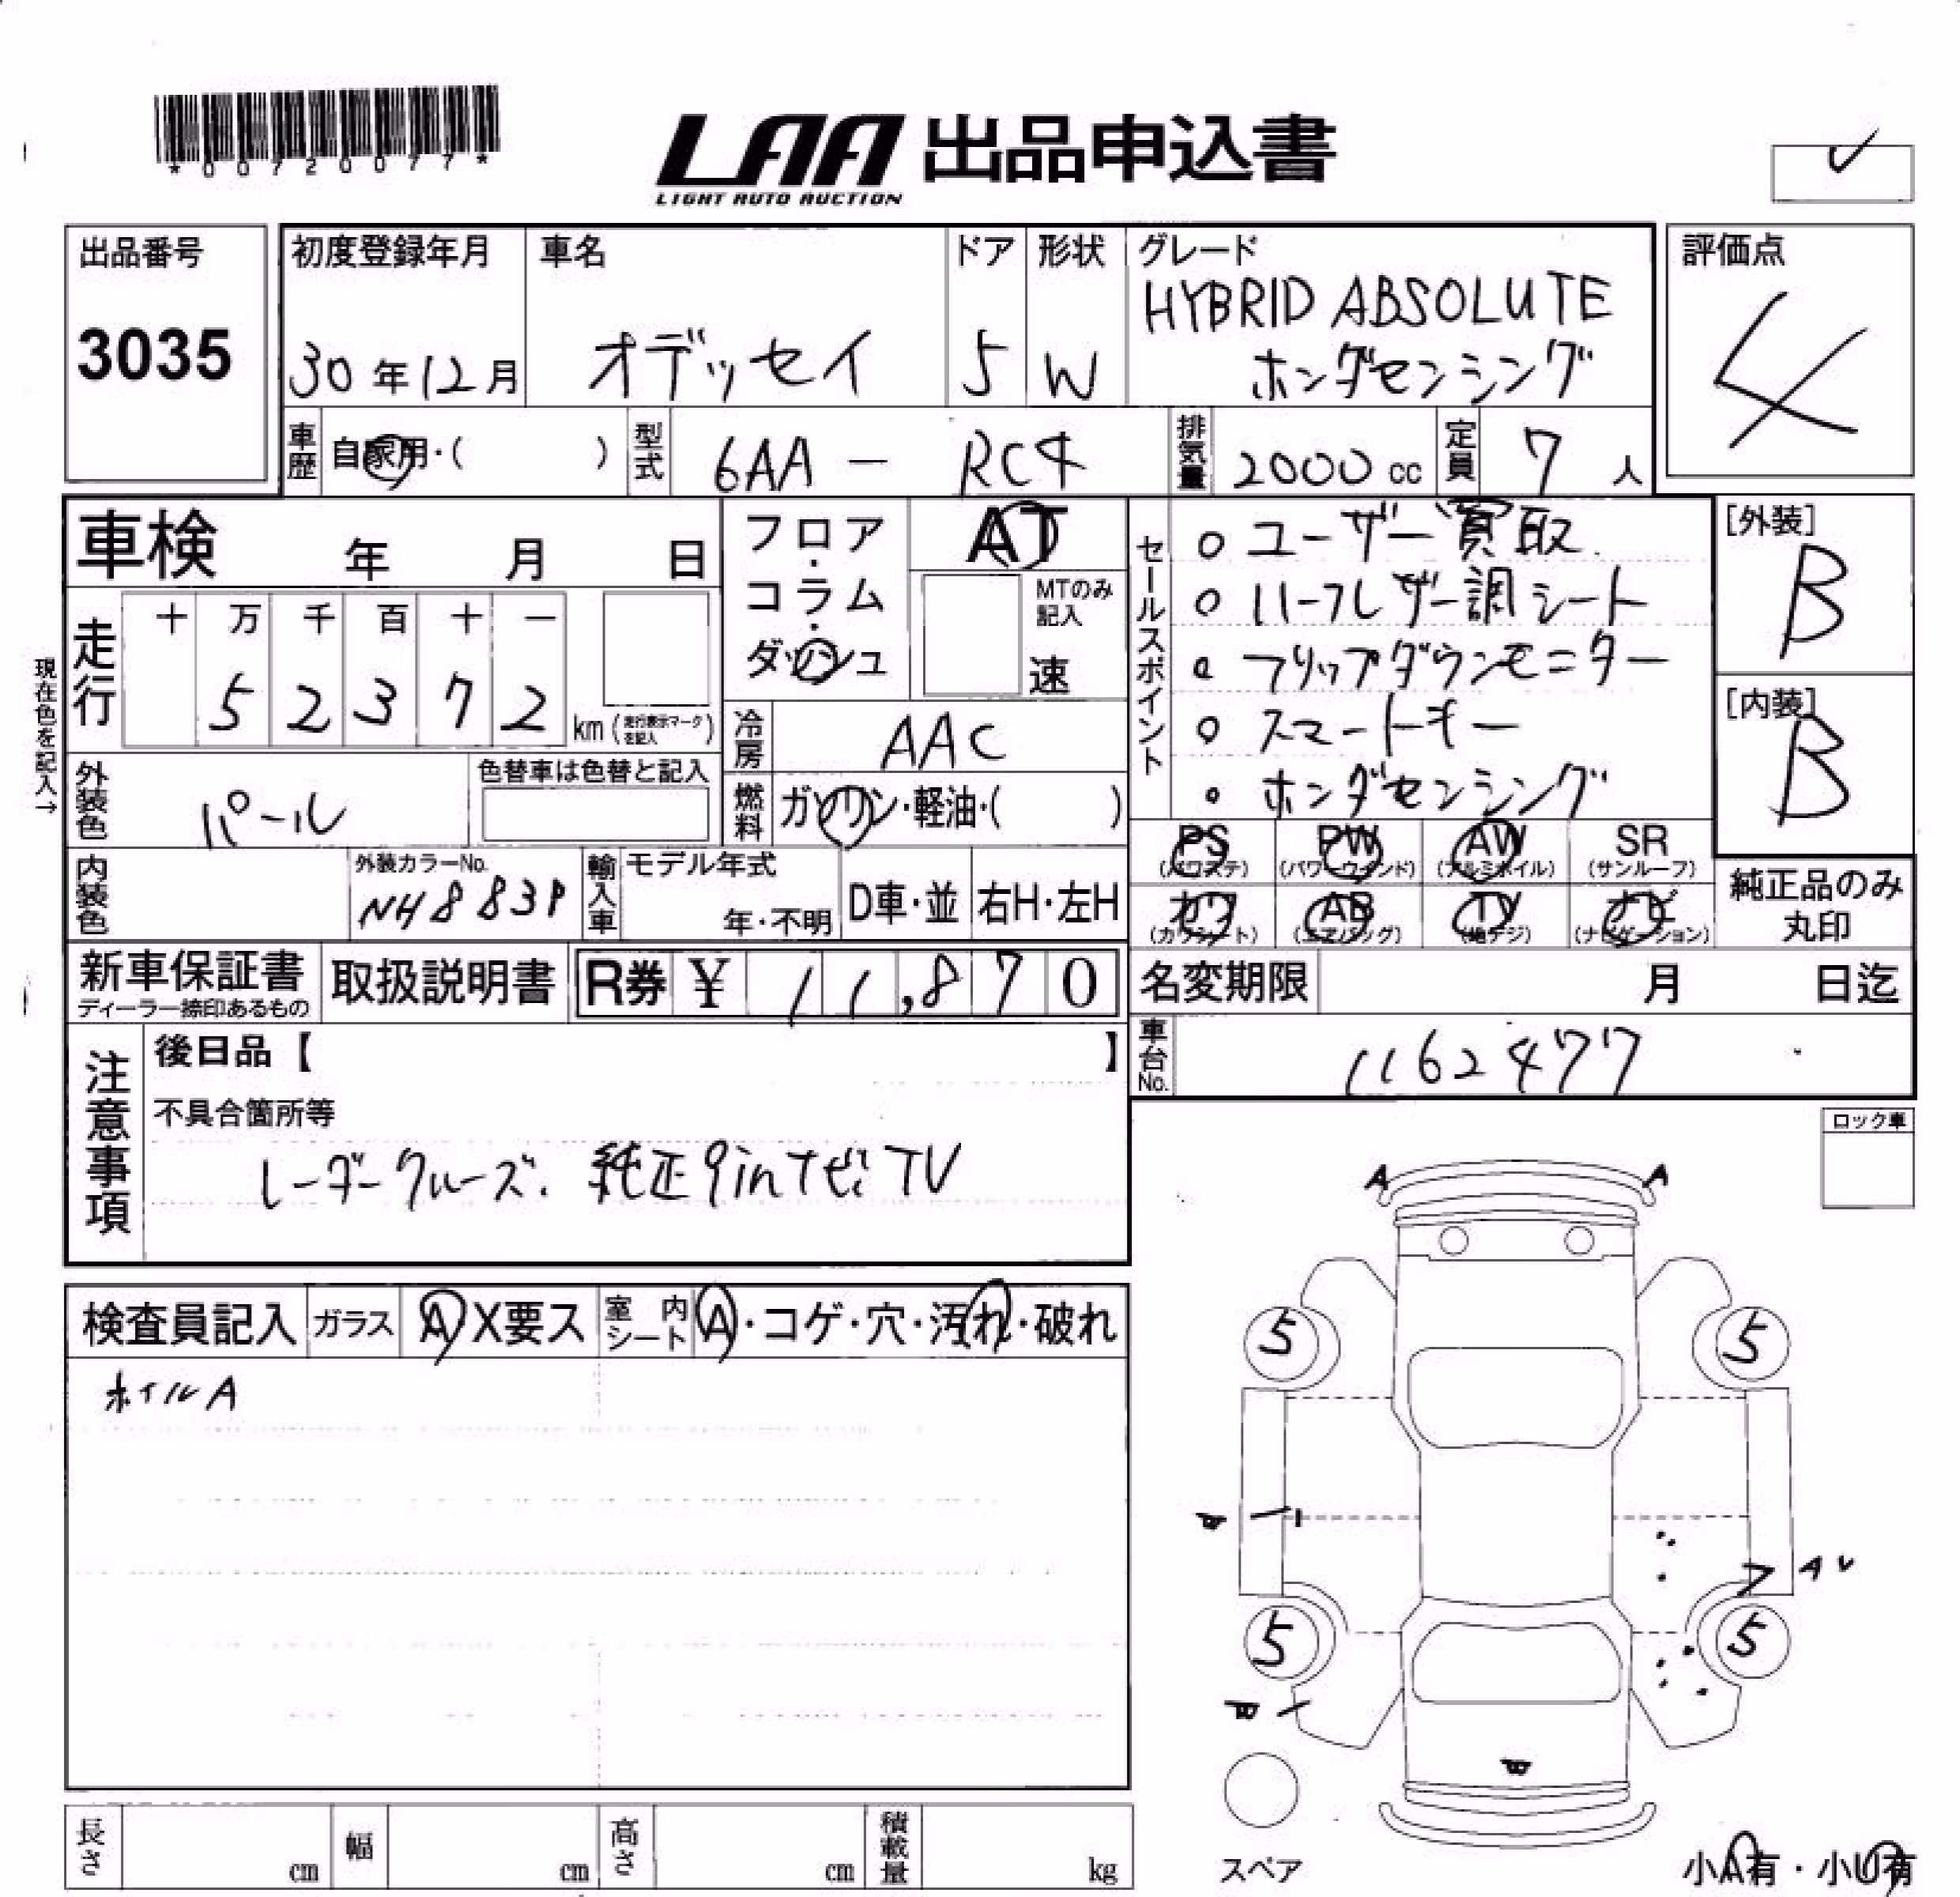 *00720077*
LAA 出品申込書
LIGHT AUTO AUCTION
出品番号
3035
初度登録年月
30年12月
車名
オデッセイ
ドア
5
形状
W
グレード
HYBRID ABSOLUTE
ホンダセンシング
評価点
4
車歴
自家用・( )
型式
6AA - RC4
排気量
2000 cc
定員
7 人
車検 年 月 日
フロア・コラム・ダッシュ
AT
MTのみ記入
速
セールスポイント
○ ユーザー買取
○ ハーフレザー調シート
○ フリップダウンモニター
○ スマートキー
○ ホンダセンシング
[外装]
B
[内装]
B
現在色を記入→
走行
十 万 千 百 十 一
5 2 3 7 2
km (走行表示マークを記入)
冷房
AAC
外装色
パール
色替車は色替と記入
燃料
ガソリン・軽油・( )
PS (パワステ)
PW (パワーウインド)
AW (アルミホイル)
SR (サンルーフ)
カワ (カワシート)
AB (エアバッグ)
TV (地デジ)
ナビ (ナビゲーション)
純正品のみ丸印
内装色
外装カラーNo.
NH883P
輸入車
モデル年式
年・不明
D車・並
右H・左H
新車保証書
ディーラー捺印あるもの
取扱説明書
R券 ¥ 11,870
名変期限 月 日迄
車台No.
1162477
注意事項
後日品【 】
不具合箇所等
レーダークルーズ. 純正9inナビ. TV
ロック車
A A
検査員記入
ガラス
A X要ス
室内シート
A・コゲ・穴・汚れ・破れ
ホイルA
5 5
A U
5 5
スペア
長さ cm
幅 cm
高さ cm
積載量 kg
小A有・小U有